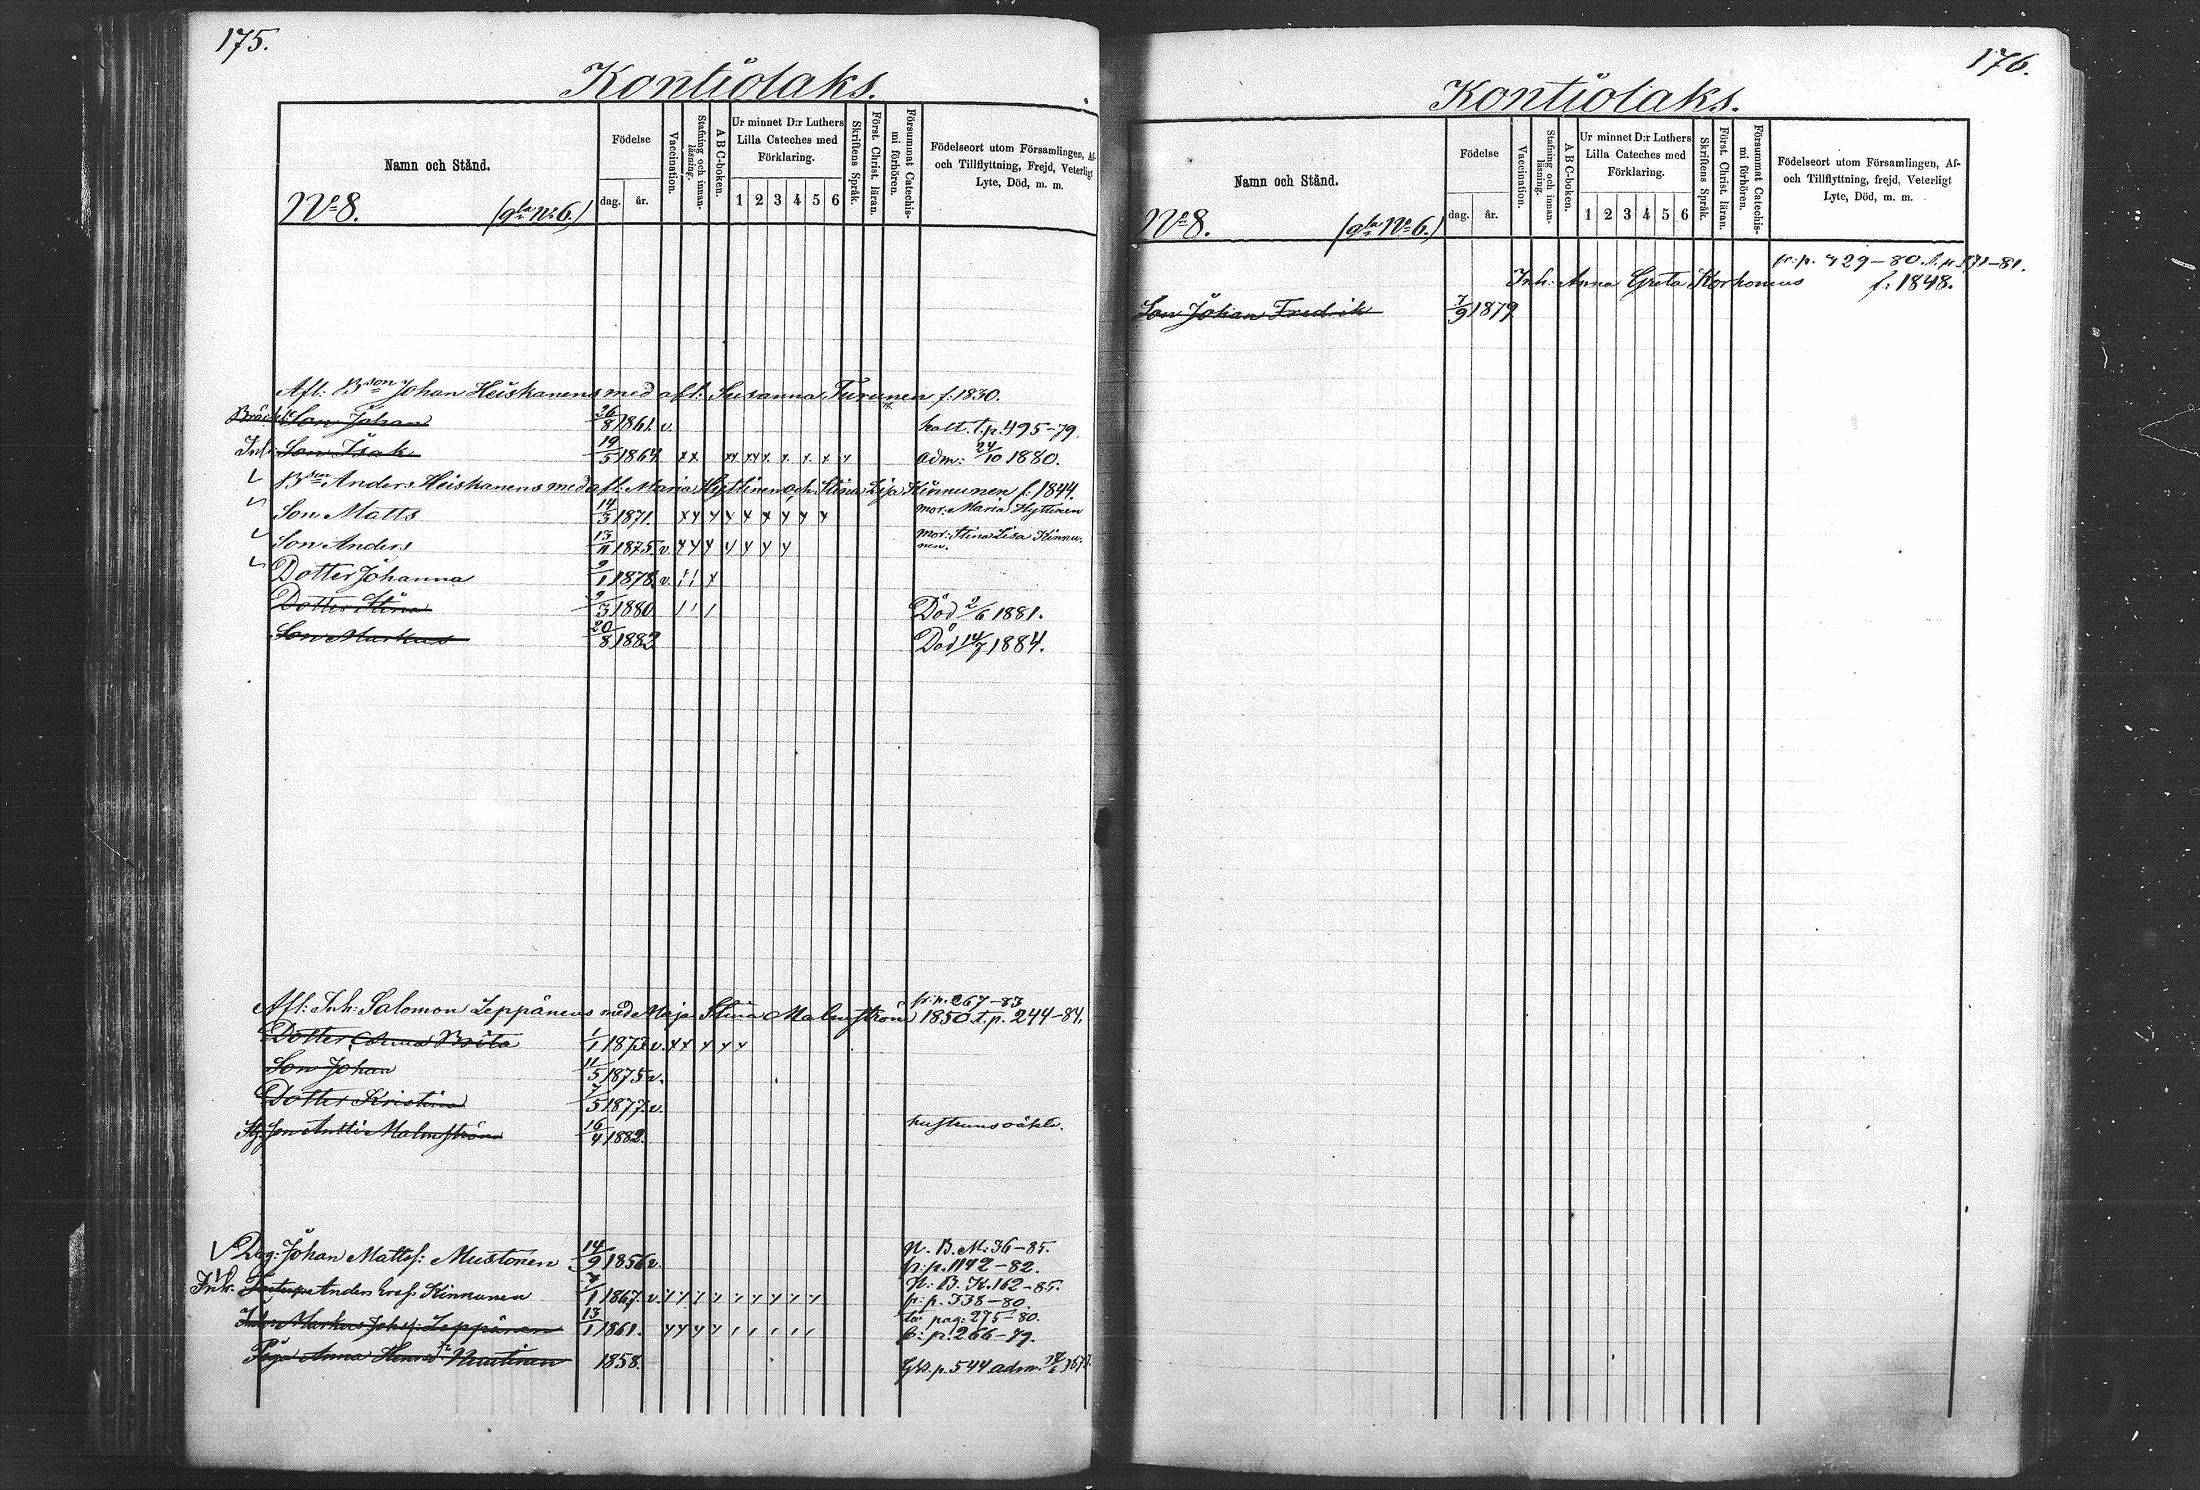 175.
Kontiolaks.
Namn och Stånd.
Födelse
dag. år.
Vaccination.
Stafning och innan-läsning.
A B C-boken.
Ur minnet D:r Luthers Lilla Cateches med Förklaring.
1 2 3 4 5 6
Skriftens Språk.
Först. Christ. läran.
Försummat Catechismi förhören.
Födelseort utom Församlingen, Af- och Tillflyttning, Frejd, Veterligt Lyte, Död, m. m.
No 8. (gla No 6.)
Afl: Bson Johan Heiskanens med afl: Susanna Turunen f: 1830.
Son Johan 26/8 1861. v. t. p. 495-79.
Inh: Son Isak 19/5 1864 adm: 24/10 1880.
Bson Anders Heiskanens med afl: Maria Hyttinen och Stina Lisa Kinnunen f: 1844.
Son Matts 14/3 1871. mor: Maria Hyttinen
Son Anders 13/11 1875. v. mor: Stina Lisa Kinnunen.
Dotter Johanna 2/1 1878. v.
Dotter Stina 2/3 1880 Död 2/6 1881.
Son Markus 20/8 1882 Död 14/7 1884.
fr: p. 267-83
Afl: Inh: Salomon Leppänens med Maja Stina Malmström 1850. t. p. 244-84.
Dotter Anna Brita 1/1 1873. v.
Son Johan 11/5 1875 v.
Dotter Kristina 7/5 1877. v.
Son Antti Malmström 16/4 1882. hustruns oäkta.
Drg: Johan Mattsf: Mustonen 14/9 1856 v. N. B. M. 36-85.
fr: p. 1142-82.
Inh. Anders Kinnunen 7/1 1867. v. N. B. K. 162-85.
fr: p. 338-80.
Inh: Markus Johsf: Leppänen 13/1 1861. pag: 275-80.
fr: p. 266-79.
Piga Anna 1858. p. 544 adm.
176.
Kontiolaks.
Namn och Stånd.
Födelse
dag. år.
Vaccination.
Stafning och innan-läsning.
A B C-boken.
Ur minnet D:r Luthers Lilla Cateches med Förklaring.
1 2 3 4 5 6
Skriftens Språk.
Först. Christ. läran.
Försummat Catechismi förhören.
Födelseort utom Församlingen, Af- och Tillflyttning, frejd, Veterligt Lyte, Död, m. m.
No 8. (gla No 6.)
fr: p. 429-80. t. p. 171-81.
Inh: Anna Greta Korhonens f: 1848.
Son Johan Fredrik 7/9 1879.